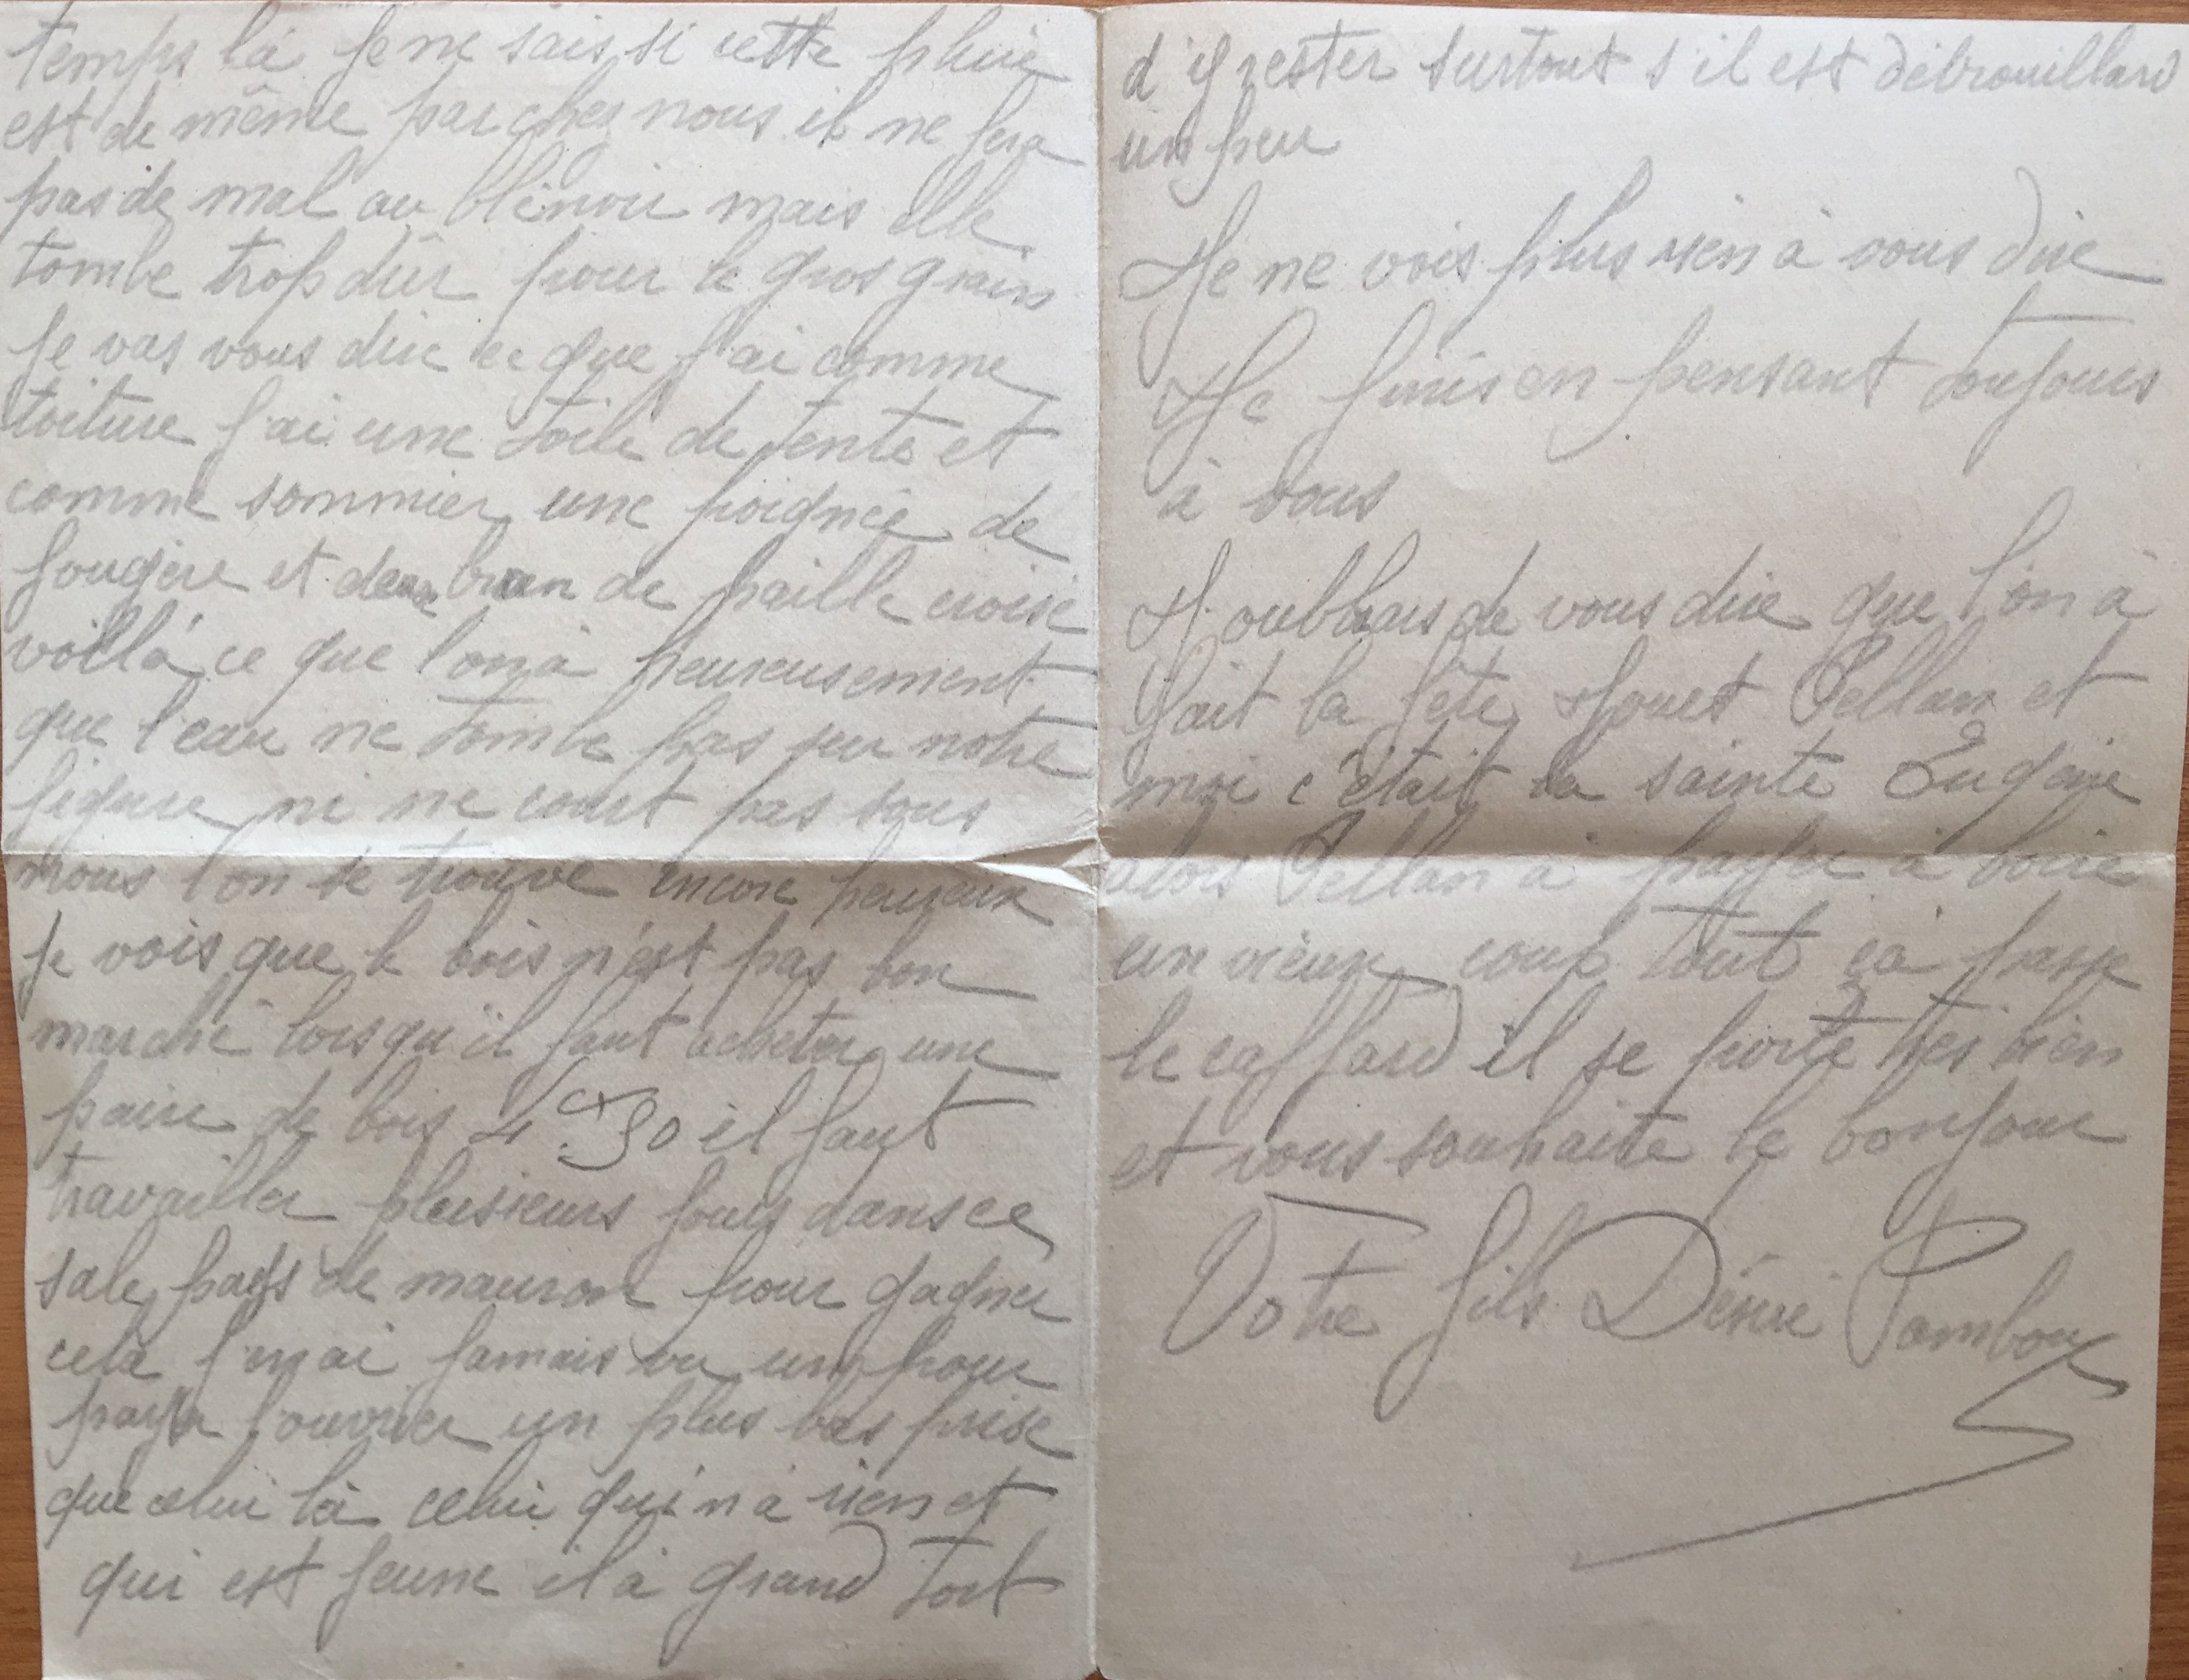 temps là je ne sais si cette pluie
est de même par chez nous il ne fera
pas de mal au blénoir mais elle
tombe trop dur pour le gros grain
je vas vous dire ce que j'ai comme
toiture j'ai une toile de tente et
comme sommier une poignée de
fougère et deux bran de paille croisé
voillà ce que l'on à heureusement
que l'eau ne tombe pas sur notre
figure ni ne court pas sous
nous l'on se trouve encore heureux
je vois que le bois n'est pas bon
marché lorsqu'il faut acheter une
paire de bois 4 30 il faut
travailler plusieurs jours dans ce
sale pays de mauron pour gagner
cela j'en ai jamais vu un pour
payer l'ouvrier un plus bas prise
que celui là celui qui n'à rien et
qui est jeune il à grand tort
d'y rester surtout s'il est débrouillard
un peu
Je ne vois plus rien à vous dire
Je finis en pensant toujours
à vous
J'oubliais de vous dire que l'on à
fait la fête Jouet Pellan et
moi c'était la sainte Eugène
alors Pellan à payer à boire
un vieux coup tout çà passe
le caffard il se porte très bien
et vous souhaite le bonjour
Votre fils Désiré Pambou